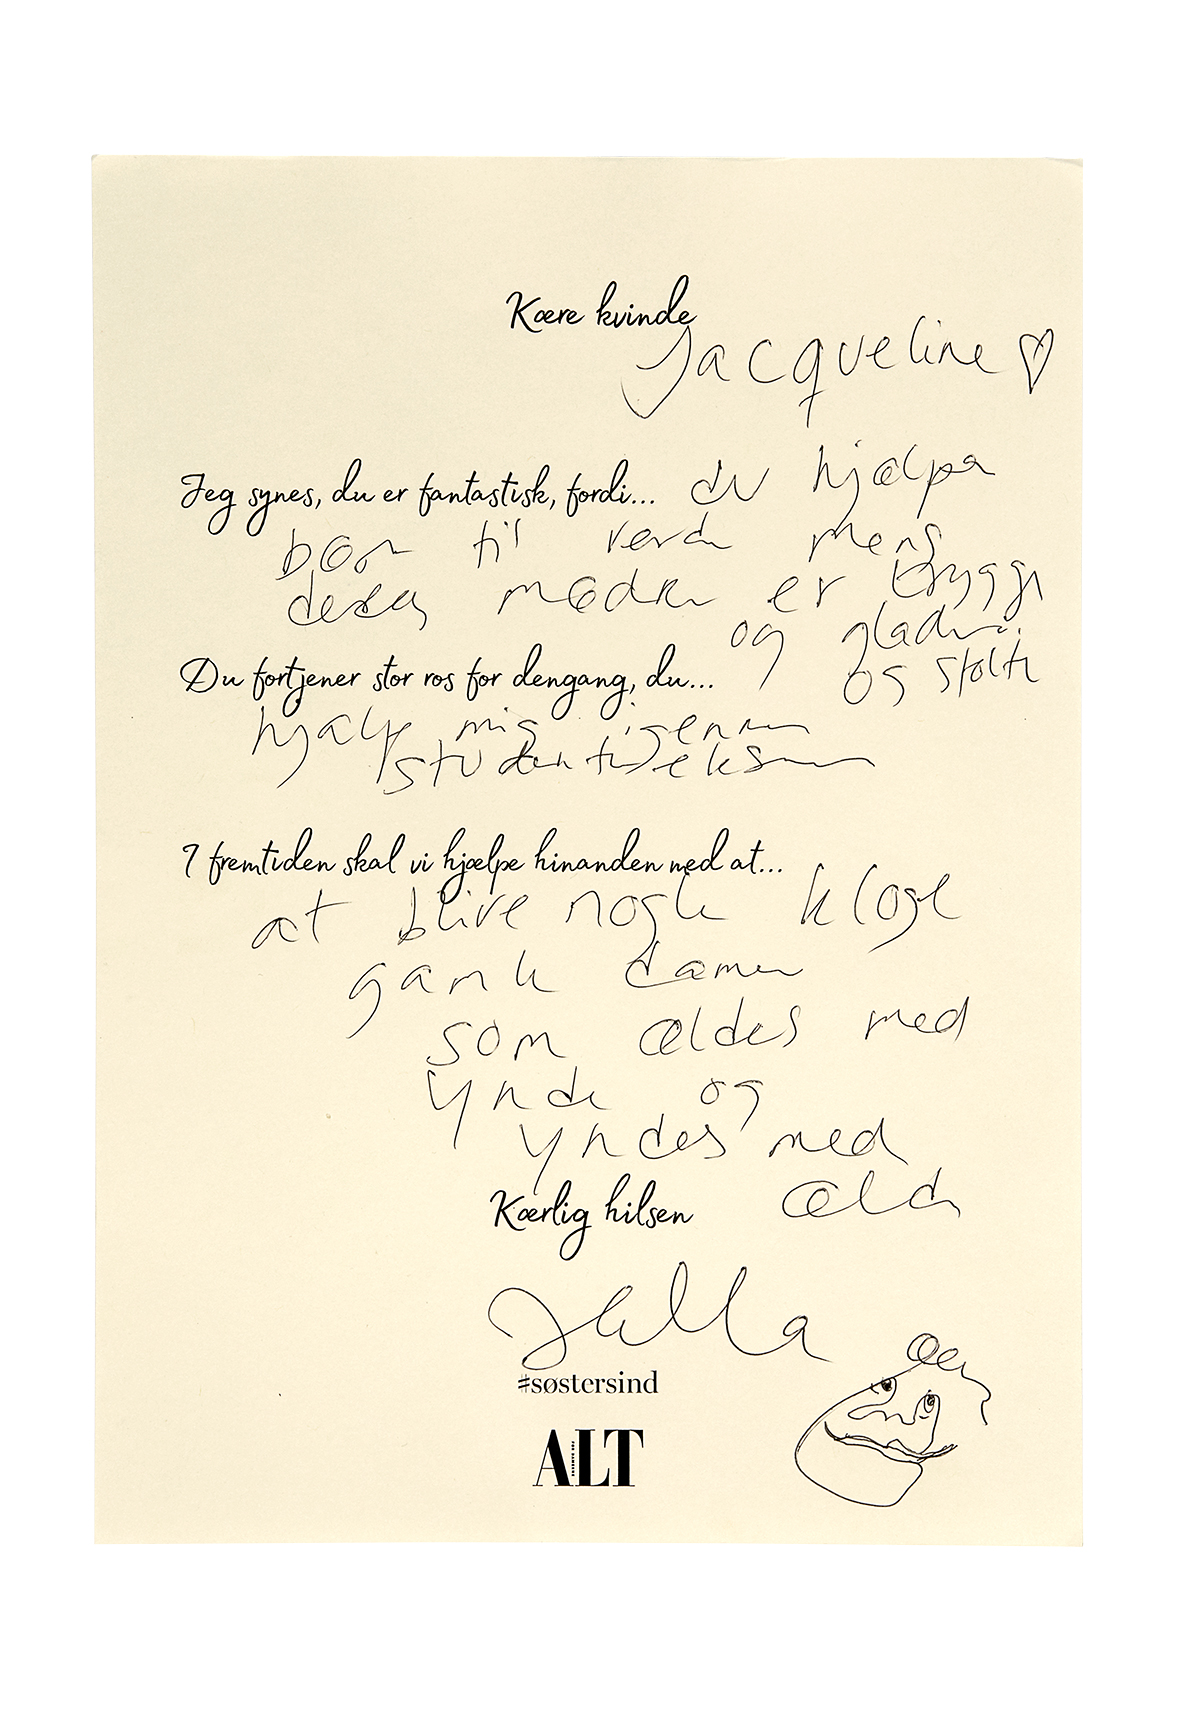 Kære kvinde
Jacqueline
Jeg synes, du er fantastisk, fordi... du hjælper
børn til verden mens
deres mødre er trygge
og glade
Du fortjener stor ros for dengang, du... og stolte
hjalp mig igennem
studentereksamen
I fremtiden skal vi hjælpe hinanden med at...
at blive nogle kloge
gamle damer
som ældes med
ynde og
yndes med
Kærlig hilsen ælde
Jella
#søstersind
ALT
FOR DAMERNE